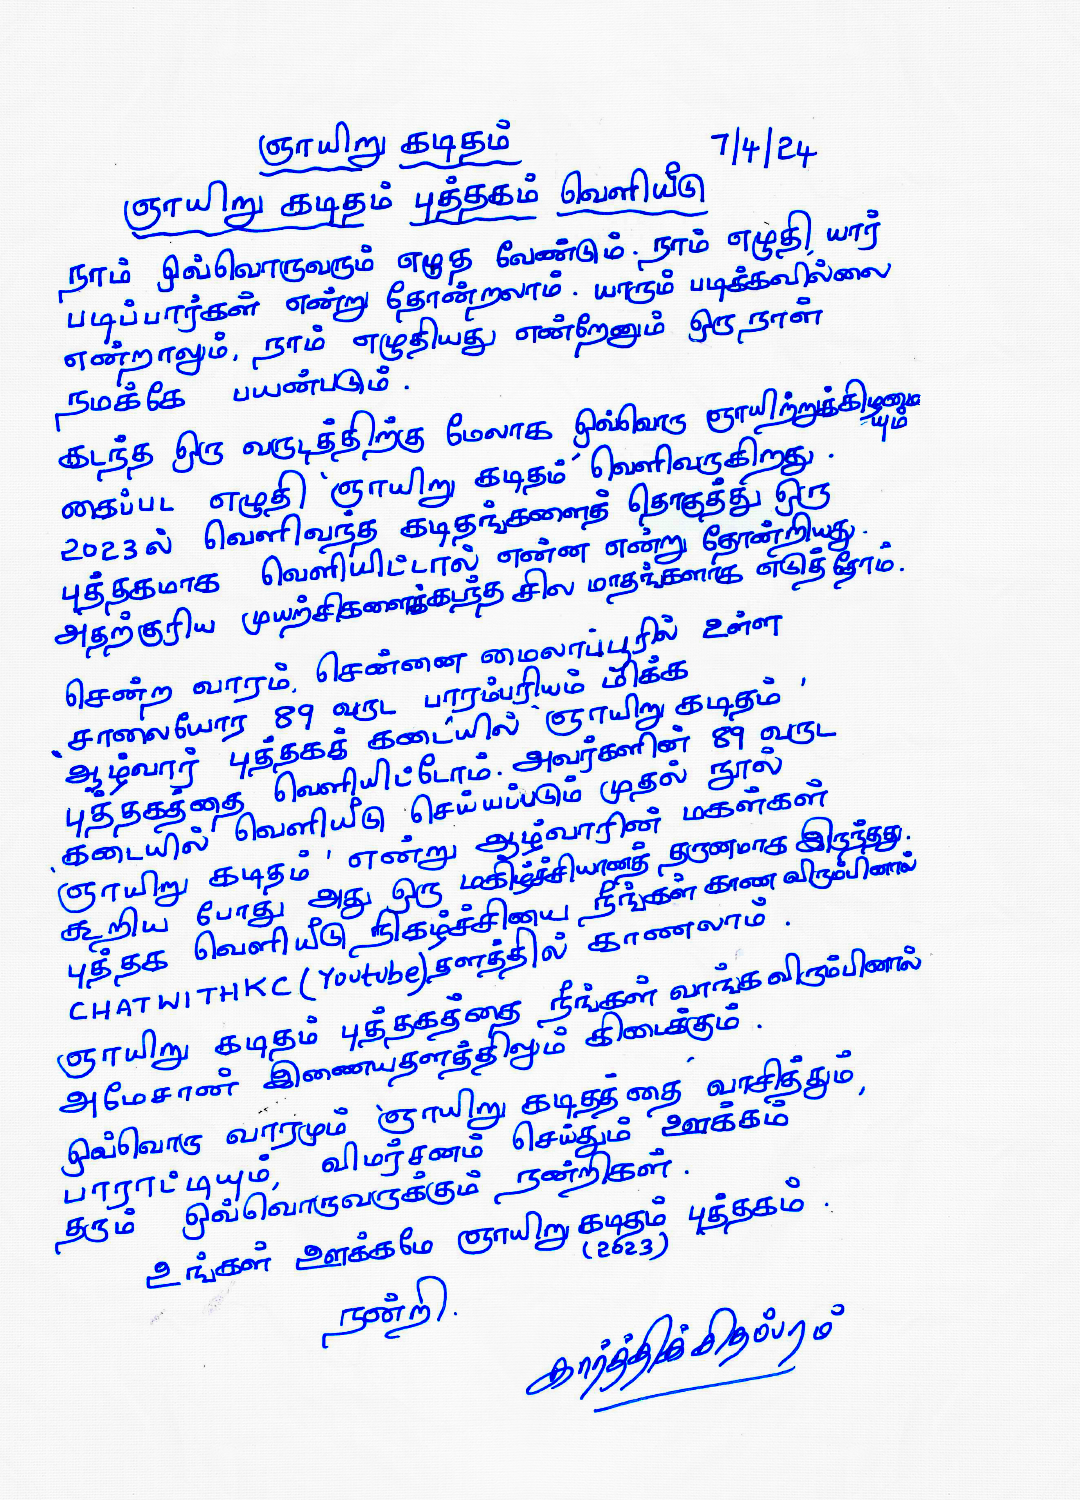 ஞாயிறு கடிதம் 7/4/24
ஞாயிறு கடிதம் புத்தகம் வெளியீடு
நாம் ஒவ்வொருவரும் எழுத வேண்டும். நாம் எழுதி யார்
படிப்பார்கள் என்று தோன்றலாம். யாரும் படிக்கவில்லை
என்றாலும், நாம் எழுதியது என்றேனும் ஒரு நாள்
நமக்கே பயன்படும்.
கடந்த ஒரு வருடத்திற்கு மேலாக ஒவ்வொரு ஞாயிற்றுக்கிழமை
யும்
கைப்பட எழுதி 'ஞாயிறு கடிதம்' வெளிவருகிறது.
2023ல் வெளிவந்த கடிதங்களைத் தொகுத்து ஒரு
புத்தகமாக வெளியிட்டால் என்ன என்று தோன்றியது.
அதற்குரிய முயற்சிகளைக்கடந்த சில மாதங்களாக எடுத்தோம்.
சென்ற வாரம், சென்னை மைலாப்பூரில் உள்ள
சாலையோர 89 வருட பாரம்பரியம் மிக்க
'ஆழ்வார் புத்தகக் கடை'யில் 'ஞாயிறு கடிதம்'
புத்தகத்தை வெளியிட்டோம். அவர்களின் 89 வருட
கடையில் வெளியீடு செய்யப்படும் முதல் நூல்
'ஞாயிறு கடிதம்' என்று ஆழ்வாரின் மகள்கள்
கூறிய போது அது ஒரு மகிழ்ச்சியானத் தருணமாக இருந்தது.
புத்தக வெளியீடு நிகழ்ச்சியை நீங்கள் காண விரும்பினால்
CHATWITHKC (Youtube) தளத்தில் காணலாம்.
ஞாயிறு கடிதம் புத்தகத்தை நீங்கள் வாங்க விரும்பினால்
அமேசான் இணையதளத்திலும் கிடைக்கும்.
ஒவ்வொரு வாரமும் 'ஞாயிறு கடிதத்தை' வாசித்தும்,
பாராட்டியும், விமர்சனம் செய்தும் ஊக்கம்
தரும் ஒவ்வொருவருக்கும் நன்றிகள்.
உங்கள் ஊக்கமே ஞாயிறு கடிதம் புத்தகம்.
(2023)
நன்றி.
கார்த்திக் சிதம்பரம்